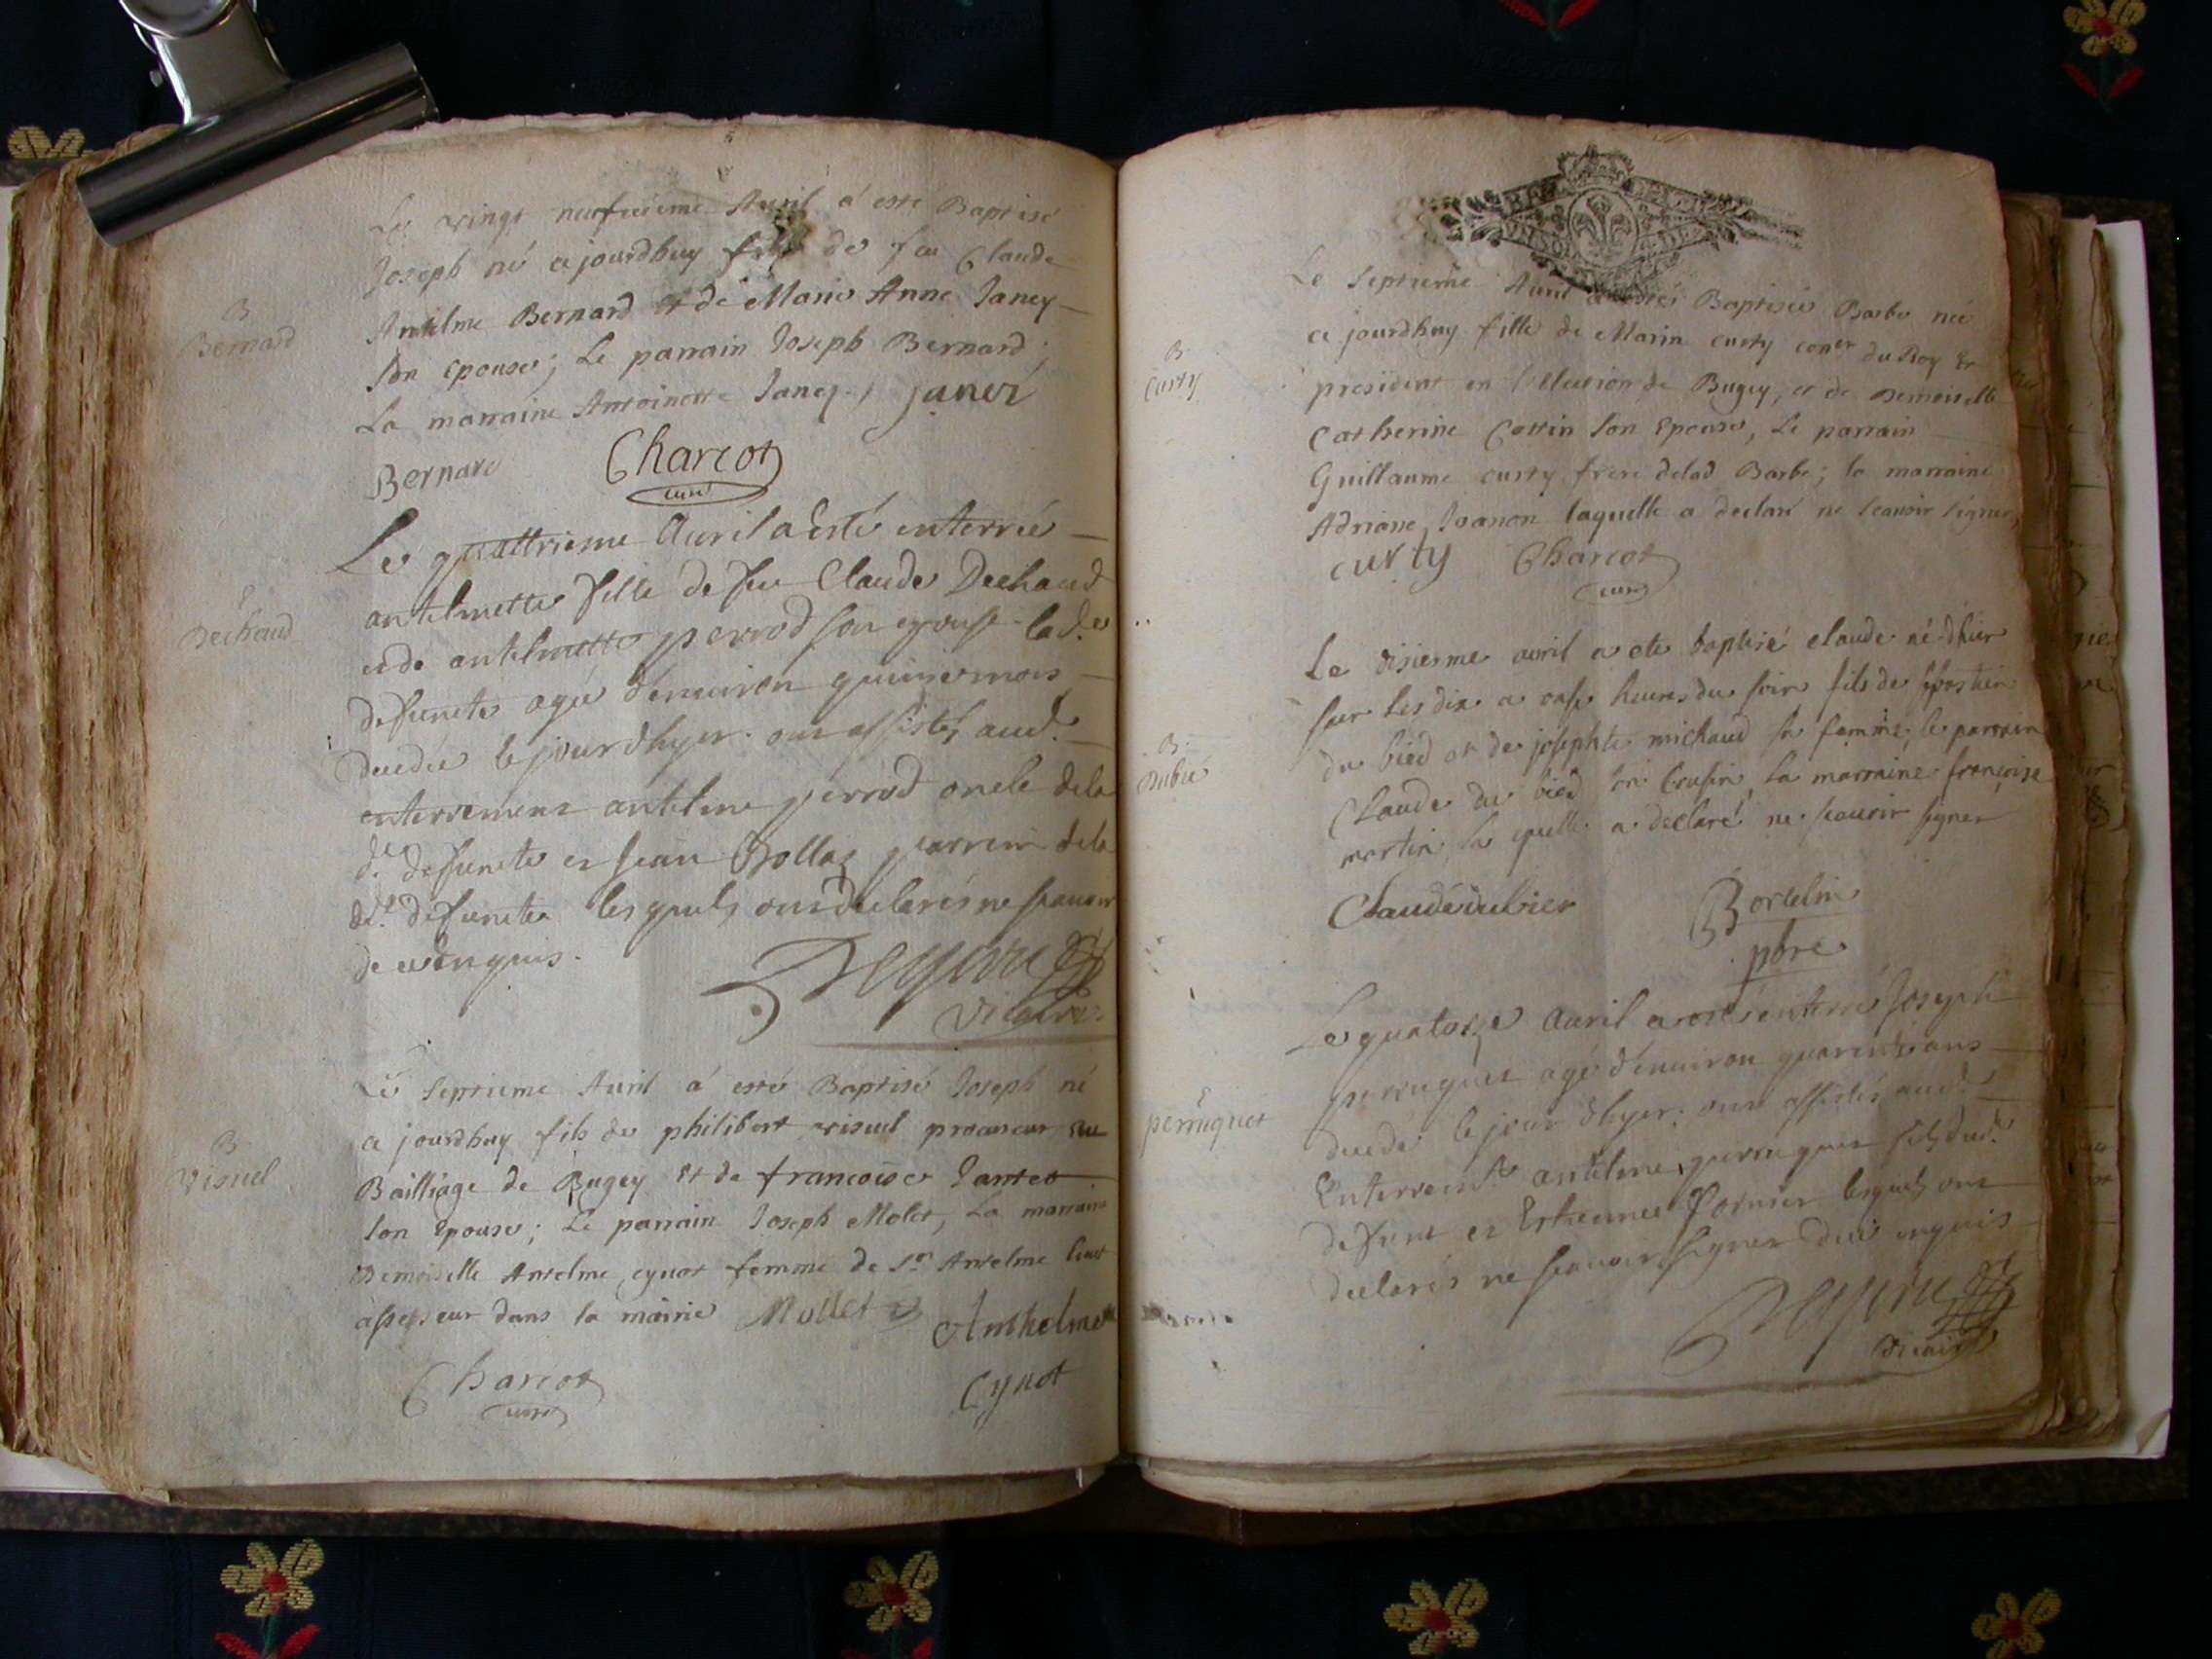 B
Bernard
Le vingt neufvieme Avril à esté Baptisé
Joseph né ajourdhuy fils de feu Claude
Antelme Bernard et de Marie Anne Janey
son epouse; Le parrain Joseph Bernard;
La marraine Antoinette Janey, janei
Bernard Charcot
curé
Dechaud
Le quattrieme Auril a esté enterrée
antelmette fille de feu Claude Dechaud
et de antelmette perrod son epouse lad.e
defuncte agée d'enuiron quinze mois
decedée le jour d'hyer. ont assistés aud.
enterrement antelme perrod oncle dela
d.e defuncte et Jean Rollaz parrein dela
d.e defuncte lesquels ont declarés ne scauoir
de ce enquis.
vicaire
B
Visuel
Le septieme Avril à esté Baptisé Joseph né
ajourdhuy fils de philibert visuel procureur au
Bailliage de Bugey et de francoise Jantet
son Epouse; Le parrain Joseph Molet, La marraine
Demoiselle Antelme cynot femme de Sr Antelme
assesseur dans la mairie Mollet Anthelme
Charcot Cynot
curé
B
Curty
Le septieme Avril a estée Baptisée Barbe née
ajourdhuy fille de Marin curty coner du Roy Et
president en l'election de Bugey, et de Demoiselle
Catherine Cottin son Epouse, Le parrain
Guillaume curty frere delad Barbe; la marraine
Adriane Joanon laquelle a declaré ne scavoir signer
curty Charcot
curé
B
Dubié
Le disiesme avril a ete baptisé claude né d'hier
sur les dix a onse heures du soir fils de
du bied et de josephte michaud sa femme, le parrain
Claude du bied son Cousin, la marraine françoise
martin, la quelle a declaré ne scavoir signer
Claude dubier
pbre
perruquet
Le quatorze Auril a esté enterré Joseph
perruquet agé d'enuiron quarente ans
decedé le jour d'hyer. ont assistés aud.
Enterremt antelme perruquet fils dud.
defunt et Estienne fornier lesquels ont
declarés ne scauoir signer de ce enquis
vicaire